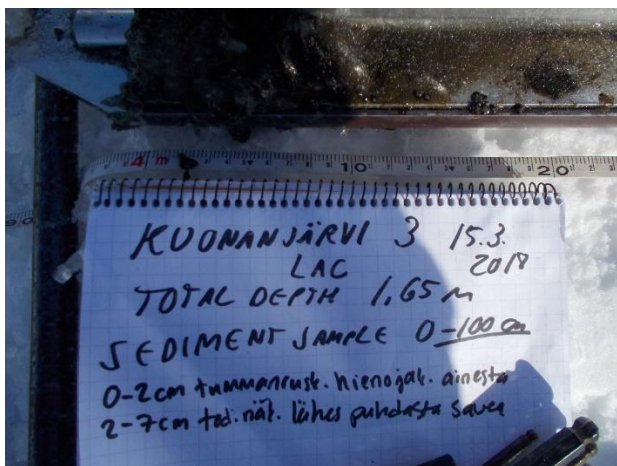 4 m 10 20
KUONANJÄRVI 3 15.3.
LAC 2018
TOTAL DEPTH 1,65 M
SEDIMENT SAMPLE 0-100 cm
0-2cm tummanrusk. hienojak. ainesta
2-7cm tod.näk. lähes puhdasta savea